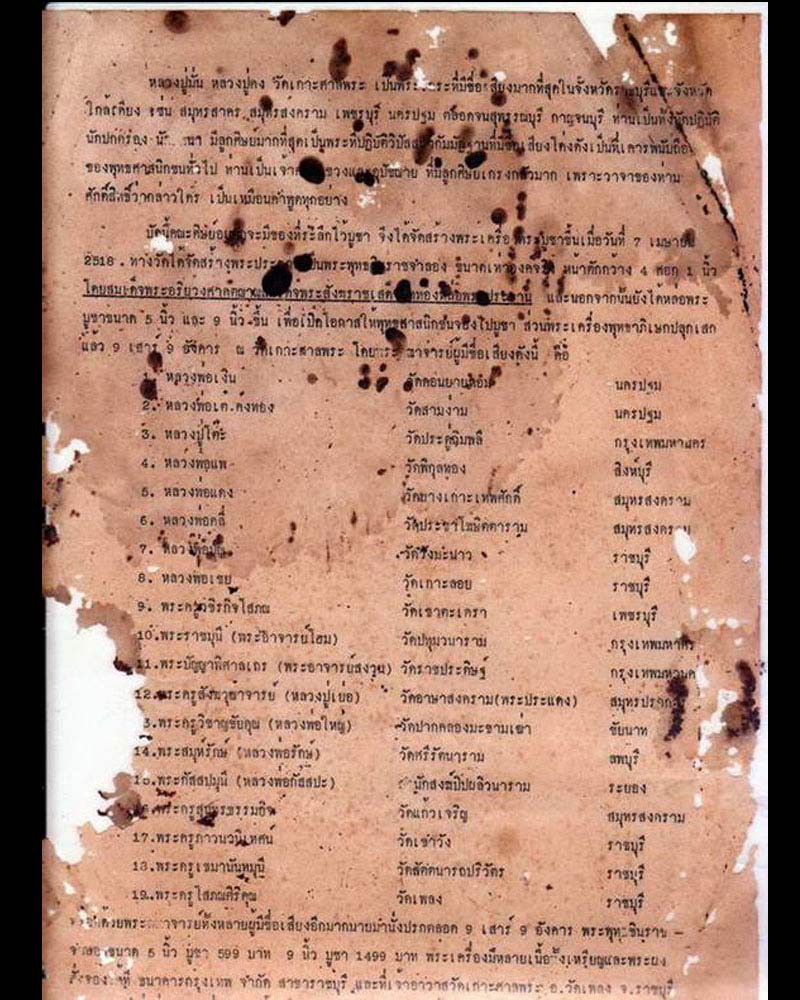 หลวงปู่มั่น หลวงปู่คง วัดเกาะศาลพระ เป็นพระ ที่มีชื่อเสียงมากที่สุดในจังหวัดราชบุรีและจังหวัด
ใกล้เคียง เช่น สมุทรสาคร สมุทรสงคราม เพชรบุรี นครปฐม ตลอดจนสุพรรณบุรี กาญจนบุรี ท่านเป็นทั้งนักปฏิบัติ
นักปกครอง มีลูกศิษย์มากที่สุดเป็นพระที่ปฏิบัติ ที่มีชื่อเสียงโด่งดังเป็นที่เคารพนับถือ
ของพุทธศาสนิกชนทั่วไป ท่านเป็น ที่มีลูกศิษย์เกรงกลัวมาก เพราะวาจาของท่าน
ศักดิ์สิทธิ์ว่ากล่าวใคร เป็นเหมือนคำพูดทุกอย่าง
บัดนี้คณะศิษย์ จะมีของที่ระลึกไว้บูชา จึงได้จัดสร้างพระเครื่อง พระบูชาขึ้นเมื่อวันที่ 7 เมษายน
2518 . ทางวัดได้จัดสร้าง เป็นพระพุทธชินราชจำลอง ขนาดเท่าองค์จริง หน้าตักกว้าง 4 ศอก 1 นิ้ว
โดยสมเด็จพระอริยวงศาคตญาณ พระสังฆราชเสด็จ และนอกจากนั้นยังได้หล่อพระ
บูชาขนาด 5 นิ้ว และ 9 นิ้ว ขึ้น เพื่อเปิดโอกาสให้พุทธศาสนิกชนจองไปบูชา ส่วนพระเครื่องพุทธาภิเษกปลุกเสก
แล้ว 9 เสาร์ 9 อังคาร ณ วัดเกาะศาลพระ โดย อาจารย์ผู้มีชื่อเสียงดังนี้ คือ
1. หลวงพ่อเงิน วัดดอนยายหอม นครปฐม
2. หลวงพ่อเต๋ คงทอง วัดสามง่าม นครปฐม
3. หลวงปู่โต๊ะ วัดประดู่ฉิมพลี กรุงเทพมหานคร
4. หลวงพ่อแพ วัดพิกุลทอง สิงห์บุรี
5. หลวงพ่อแดง วัดบางเกาะเทพศักดิ์ สมุทรสงคราม
6. หลวงพ่อคลี่ วัดประชาโฆษิตาราม สมุทรสงคราม
7. หลวงพ่อ วัดวังมะนาว ราชบุรี
8. หลวงพ่อเชย วัดเกาะลอย ราชบุรี
9. พระครูวชิรกิจโสภณ วัดเขาตะเครา เพชรบุรี
10.พระราชมุนี (พระอาจารย์โฮม) วัดปทุมวนาราม กรุงเทพมหานคร
11.พระปัญญาพิศาลเถร (พระอาจารย์สงวน) วัดราชประดิษฐ์ กรุงเทพมหานคร
12.พระครูสังฆวุฒาจารย์ (หลวงปู่เย่อ) วัดอาษาสงคราม(พระประแดง) สมุทรปราการ
3.พระครูวิชาญชัยคุณ (หลวงพ่อใหญ่) วัดปากคลองมะขามเฒ่า ชัยนาท
14.พระสมุห์รักษ์ (หลวงพ่อรักษ์) วัดศรีรัตนาราม ลพบุรี
15.พระกัสสปมุนี (หลวงพ่อกัสสปะ) สำนักสงฆ์ปิปผลิวนาราม ระยอง
วัดแก้วเจริญ สมุทรสงคราม
17.พระครูภาวนานิเทศน์ วัดเขาวัง ราชบุรี
18.พระครูเขมานันทมุนี วัดสัตตนารถปริวัตร ราชบุรี
19.พระครูโสภณศิริคุณ วัดเพลง ราชบุรี
อาจารย์ทั้งหลายผู้มีชื่อเสียงอีกมากมายมานั่งปรกตลอด 9 เสาร์ 9 อังคาร พระพุทธชินราช -
ขนาด 5 นิ้ว บูชา 599 บาท 9 นิ้ว บูชา 1499 บาท พระเครื่องมีหลายเนื้อทั้งเหรียญและพระผง
สั่งจองได้ที่ ธนาคารกรุงเทพ จำกัด สาขาราชบุรี และที่เจ้าอาวาสวัดเกาะศาลพระ อ.วัดเพลง จ.ราชบุรี